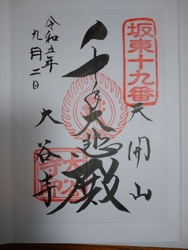 坂東十九番
天開山
千手大悲殿
大谷寺
令和五年
九月二日